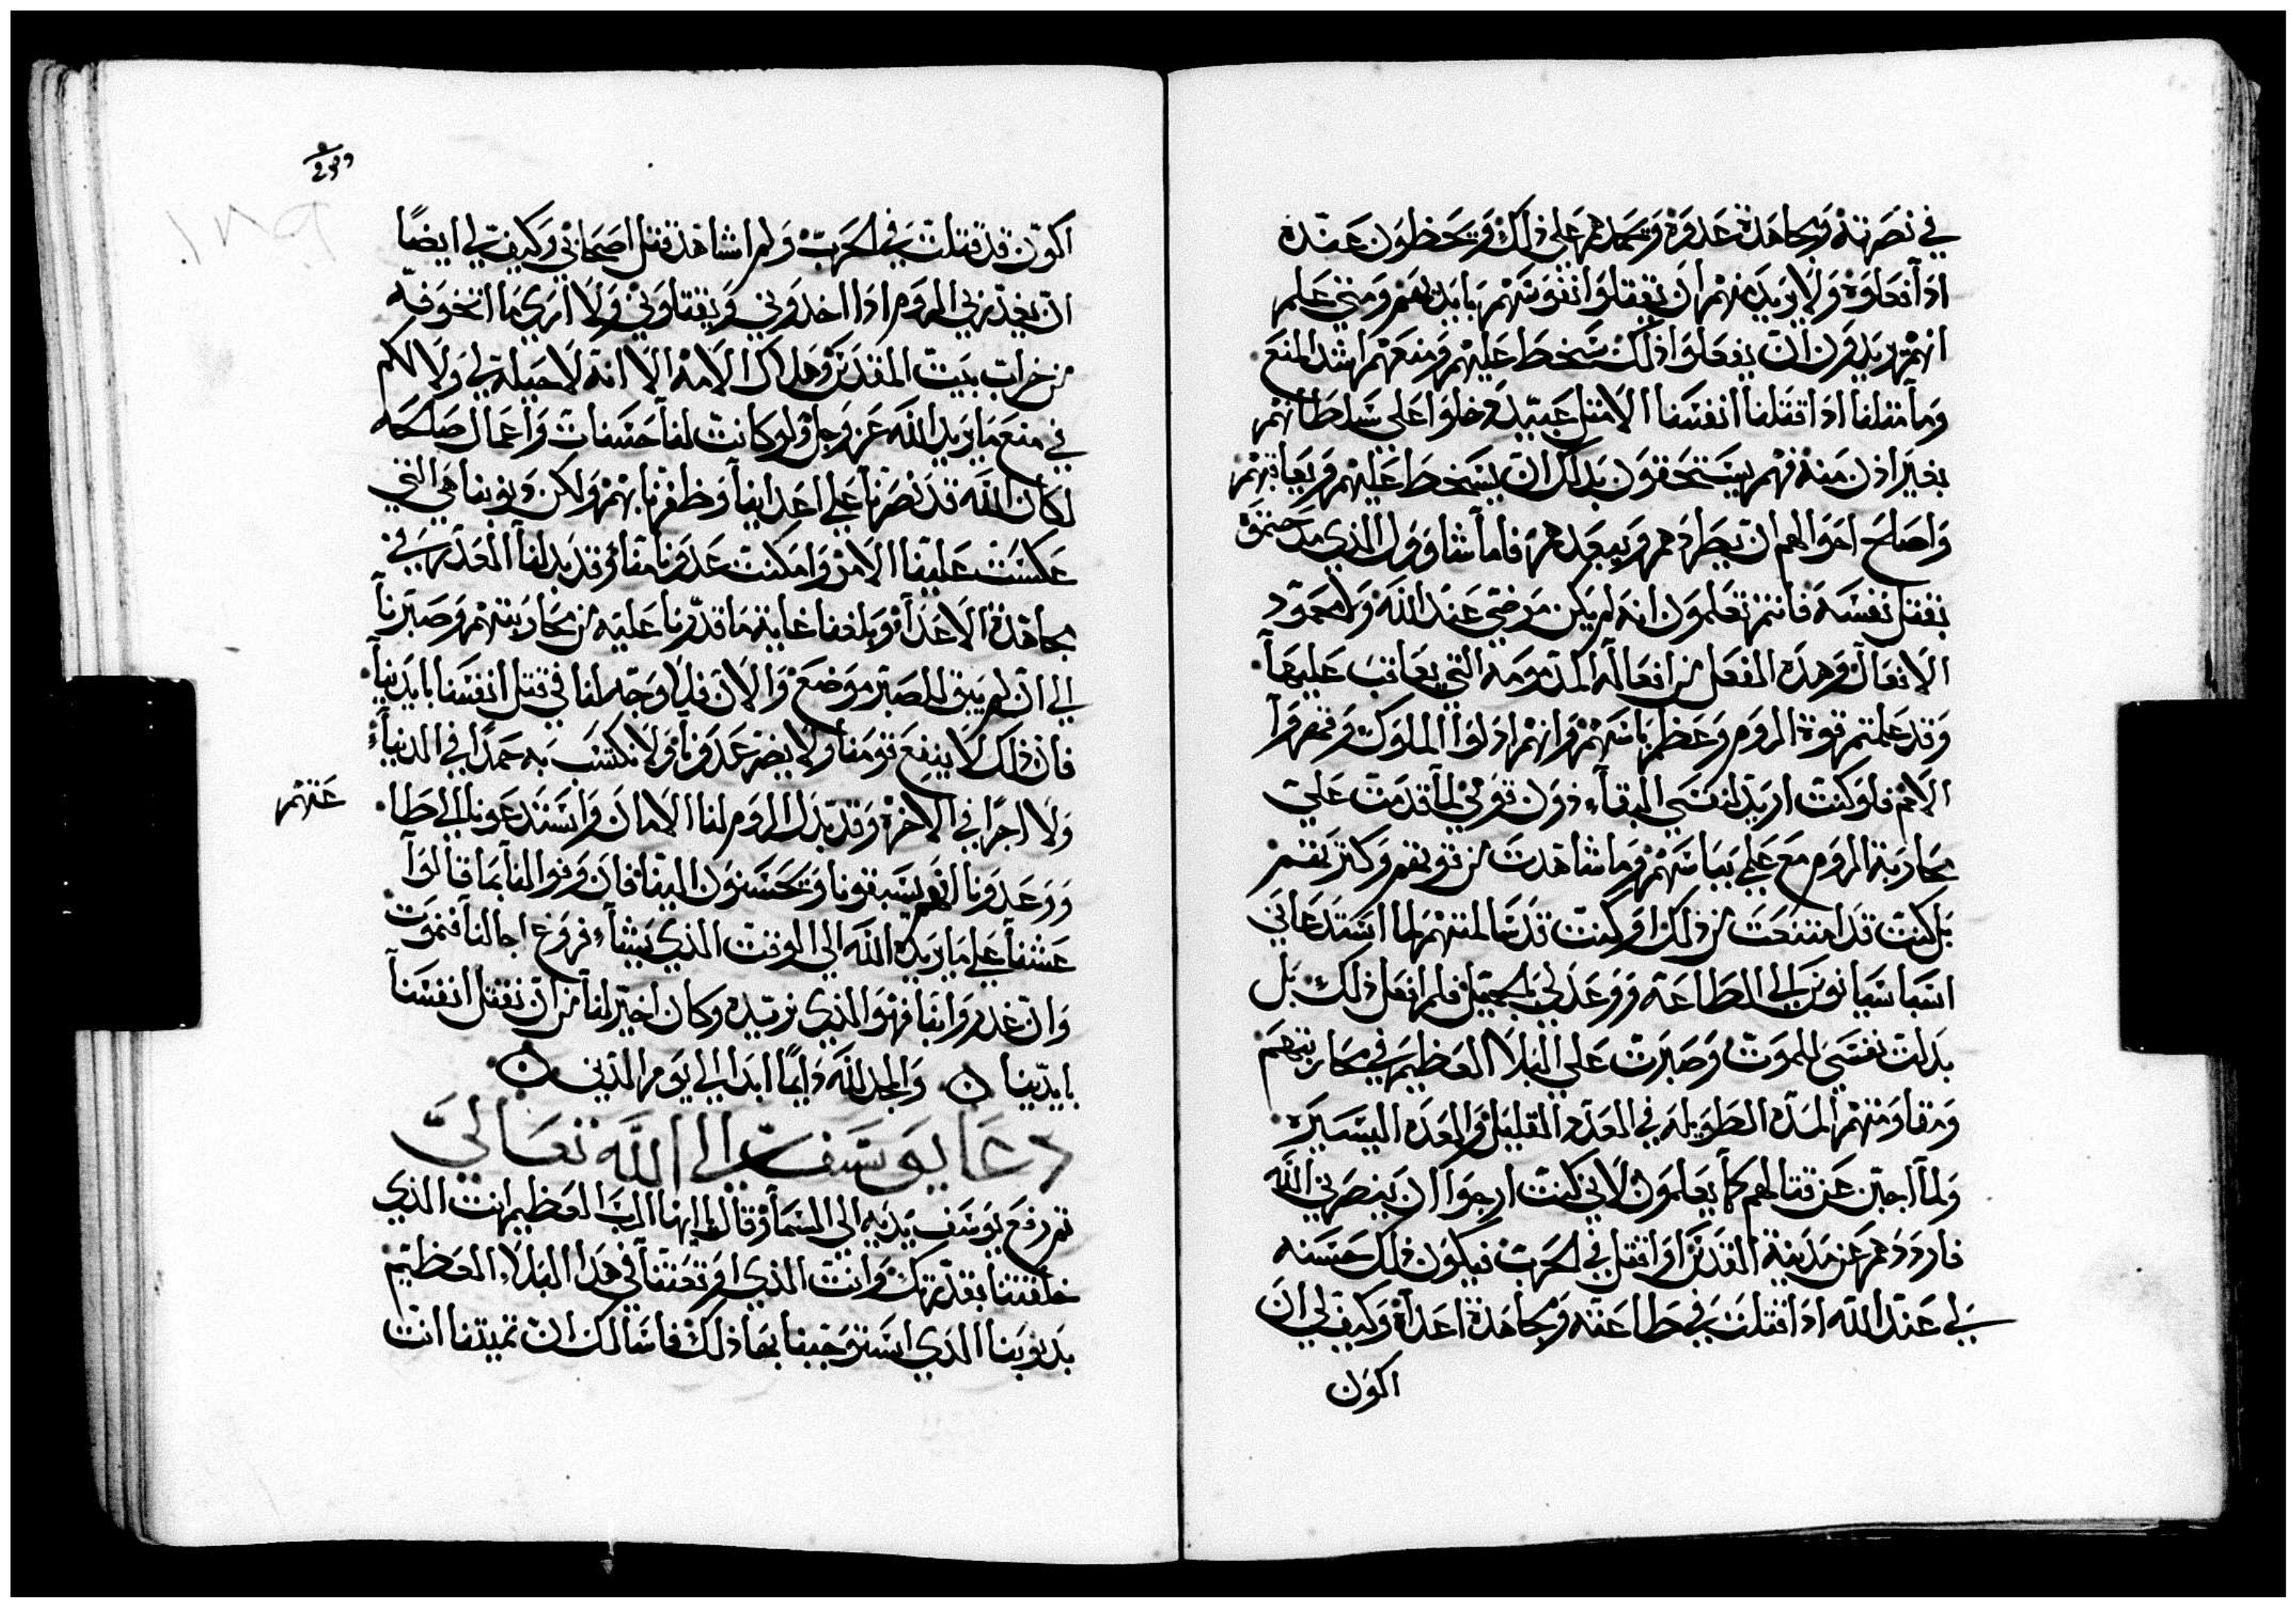 في نصرته ومجاهدة عدوه ويحمدهم على ذلك ويحظون عنده
اذا فعلوه ولا يريد منهم ان يقتلوا نفوسهم بايديهم ومتي علم
انهم يريدون ان يفعلوا ذلك سخط عليهم ومنعهم اشد المنع
وما مثلنا اذا قتلنا انفسنا الا مثل عبيد دخلوا على سلطانهم
بغير اذن منه فهم يستحقون بذلك ان يسخط عليهم ويعاقبهم
واصلح احوالهم ان يطردهم ويبعدهم فاما شاوول الذي مدحتموه
بقتل نفسه فانتم تعلمون انه لم يكن مرضي عند الله ولا محمود
الافعال وهذه الفعل من افعاله المذمومة التي يعاقب عليها
وقد علمتم قوة الروم وعظم باسهم وانهم اذلوا الملوك وقهروا
الامم فلو كنت اريد لنفسي البقاء دون قومي لما قدمت علي
محاربة الروم مع علمي بباسهم وما شاهدت من قوتهم وكثرتهم
بل كنت قد امتنعت من ذلك او كنت قد سالمتهم لما استدعاني
اسباسيانوس الي الطاعة ووعدني بالجميل فلم افعل ذلك بل
بذلت نفسي للموت وصبرت علي البلا العظيم في محاربتهم
ومقاومتهم المدة الطويله في العدد القليل والعدة اليسيرة
ولما اجبن عن قتالهم كما تعلمون لاني كنت ارجوا ان ينصرني الله
فاردهم عن مدينة القدس او اقتل في الحرب فيكون ذلك حسنه
لي عند الله اذا قتلت في طاعته ومجاهدة اعداه وكيف لي ان
اكون
اكون قد قتلت في الحرب ولم اشاهد قتل اصحابي وكيف لي ايضا
ان يغدر بي الروم اذا اخذوني ويقتلوني ولا اري ما اتخوفه
من خراب بيت المقدس وهلاك الامه الا انه لا حيلة لي ولا لكم
في منع ما يريد الله عز وجل ولو كانت لنا حسنات واعمال صالحه
لكان الله قد نصرنا علي اعداينا وظفرنا بهم ولكن ذنوبنا هي التي
عكست علينا الامر وامكنت عدونا منا وقد بذلنا المقدره في
مجاهدة الاعداء وبلغنا غاية ما قدرنا عليه من محاربتهم وصبرنا
الي ان لم يبق للصبر موضع والان فلا وجه لنا في قتل انفسنا بايدينا
فان ذلك لا ينفع قومنا ولا يضر عدونا ولا نكتسب به حمدا في الدنيا
ولا اجرا في الاخرة وقد بذل الروم لنا الامان واستدعونا الي طا
عتهم
ووعدونا انهم يستبقونا ويحسنون الينا فان وفوا لنا بما قالوا
عشنا علي ما يريده الله الي الوقت الذي يشاء فروغ اجالنا فنموت
وان غدروا بنا فهو الذي نريده وكان اخير لنا من ان نقتل انفسنا
بايدينا والمجد لله دايما ابدا الي يوم الدين
دعا يوسف الي الله تعالى
ثم رفع يوسف يديه الي السما وقال ايها الرب العظيم انت الذي
خلقتنا بقدرتك وانت الذي اوقعتنا في هذا البلاء العظيم
بذنوبنا الذي استوجبنا بها ذلك فاسالك ان تميتنا انت